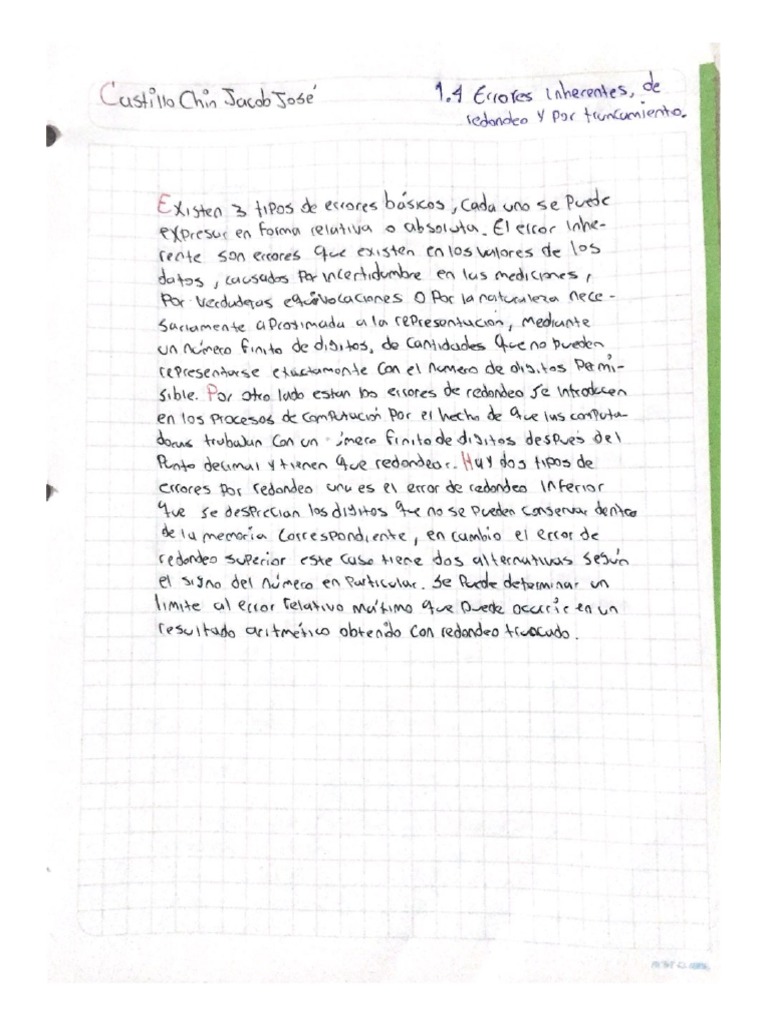 Castillo Chin Jacob José
1.4 Errores inherentes, de
redondeo y por truncamiento.
Existen 3 tipos de errores básicos, cada uno se puede
expresar en forma relativa o absoluta. El error inhe-
rente son errores que existen en los valores de los
datos, causados por incertidumbre en las mediciones,
por verdaderas equivocaciones o por la naturaleza nece-
sariamente aproximada a la representación, mediante
un número finito de digitos, de cantidades que no pueden
representarse exactamente con el numero de digitos permi-
sible. Por otro lado estan los errores de redondeo se introducen
en los procesos de computación por el hecho de que las computa-
doras trabajan con un imero finito de digitos después del
punto decimal y tienen que redondear. Hay dos tipos de
errores por redondeo una es el error de redondeo inferior
que se desprecian los digitos que no se pueden conservar dentro
de la memoria correspondiente, en cambio el error de
redondeo superior este caso tiene dos alternativas según
el signo del número en particular. Se puede determinar un
limite al error relativo máximo que puede ocurrir en un
resultado aritmético obtendo con redondeo